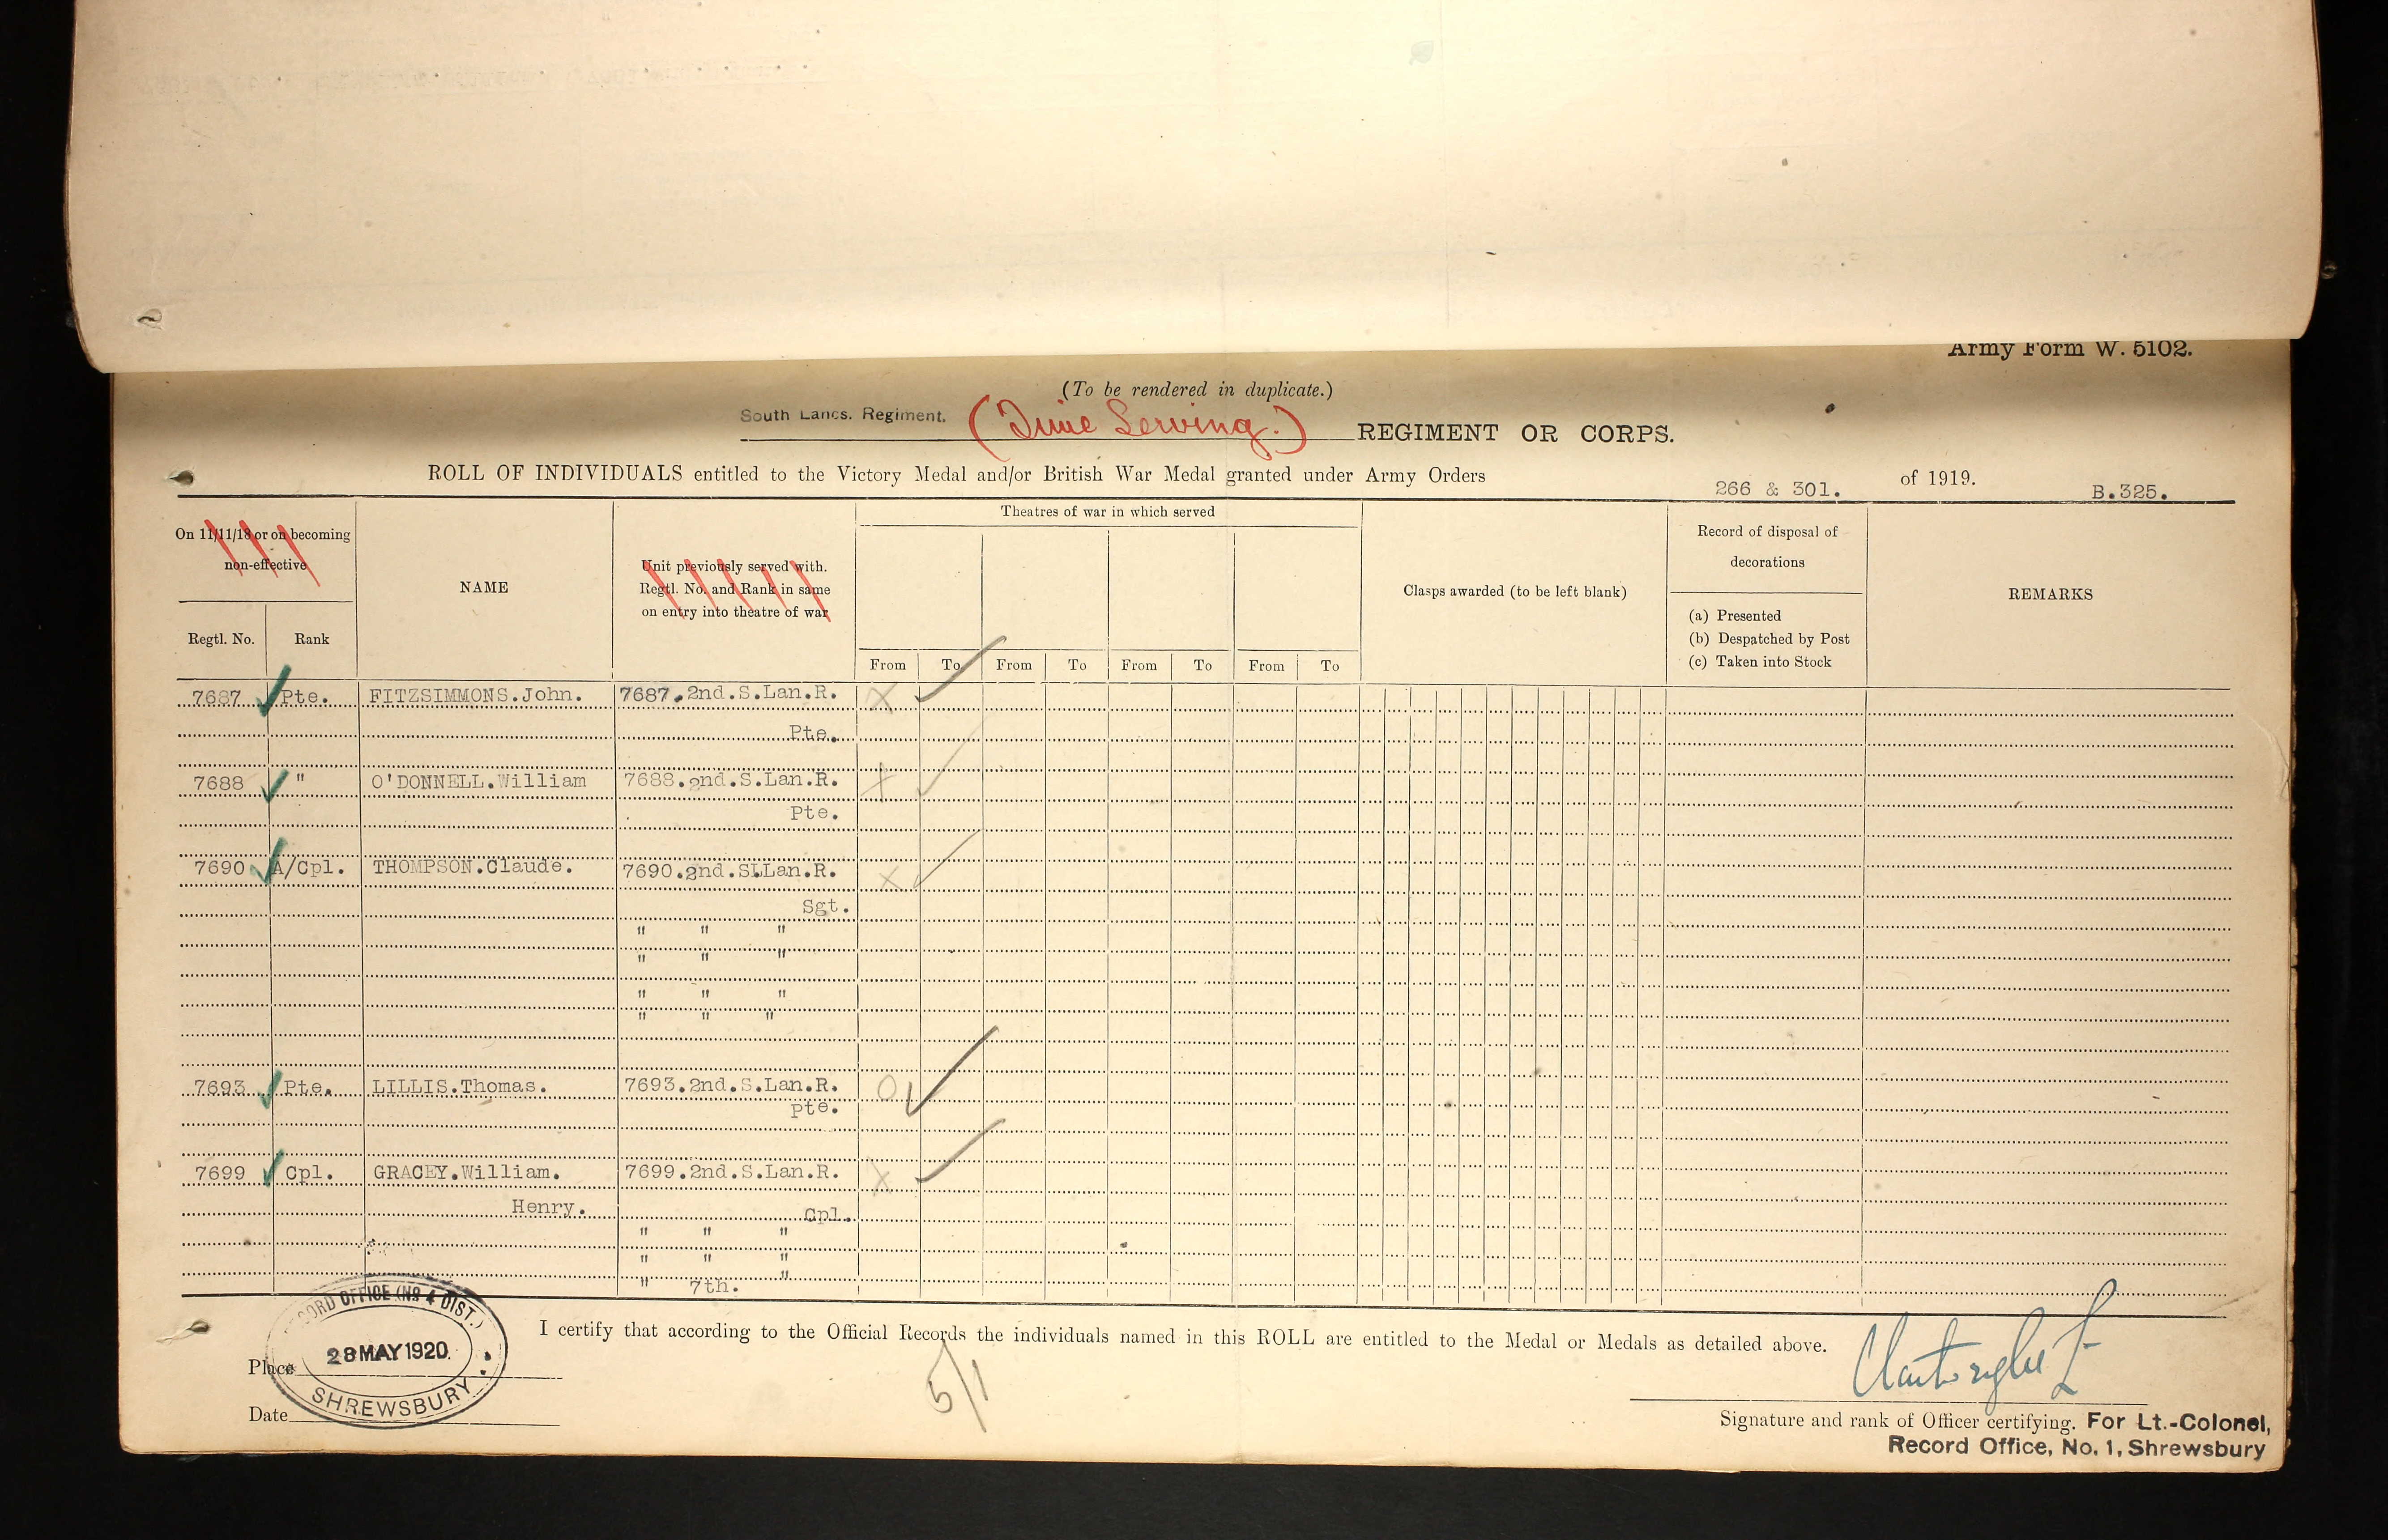 Army Form W. 5102.
(To be rendered in duplicate.)
South Lancs. Regiment. (Time Serving.) REGIMENT OR CORPS.
ROLL OF INDIVIDUALS entitled to the Victory Medal and/or British War Medal granted under Army Orders 266 & 301. of 1919. B.325.
On 11/11/18 or on becoming
non-effective
Regtl. No. Rank
NAME
Unit previously served with.
Regtl. No. and Rank in same
on entry into theatre of war
Theatres of war in which served
From To From To From To From To
Clasps awarded (to be left blank)
Record of disposal of
decorations
(a) Presented
(b) Despatched by Post
(c) Taken into Stock
REMARKS
7687 Pte. FITZSIMMONS.John. 7687.2nd.S.Lan.R. X
Pte.
7688 " O'DONNELL.William 7688.2nd.S.Lan.R. X
Pte.
7690 A/Cpl. THOMPSON.Claude. 7690.2nd.SLLan.R. X
Sgt.
" " "
" " "
" " "
" " "
7693 Pte. LILLIS.Thomas. 7693.2nd.S.Lan.R. O
pte.
7699 Cpl. GRACEY.William. 7699.2nd.S.Lan.R. X
Henry. Cpl.
" " "
" " "
" 7th. "
I certify that according to the Official Records the individuals named in this ROLL are entitled to the Medal or Medals as detailed above.
RECORD OFFICE (No 4 DIST.)
28 MAY 1920
SHREWSBURY
Place
Date
5/1
Signature and rank of Officer certifying. For Lt.-Colonel,
Record Office, No. 1, Shrewsbury